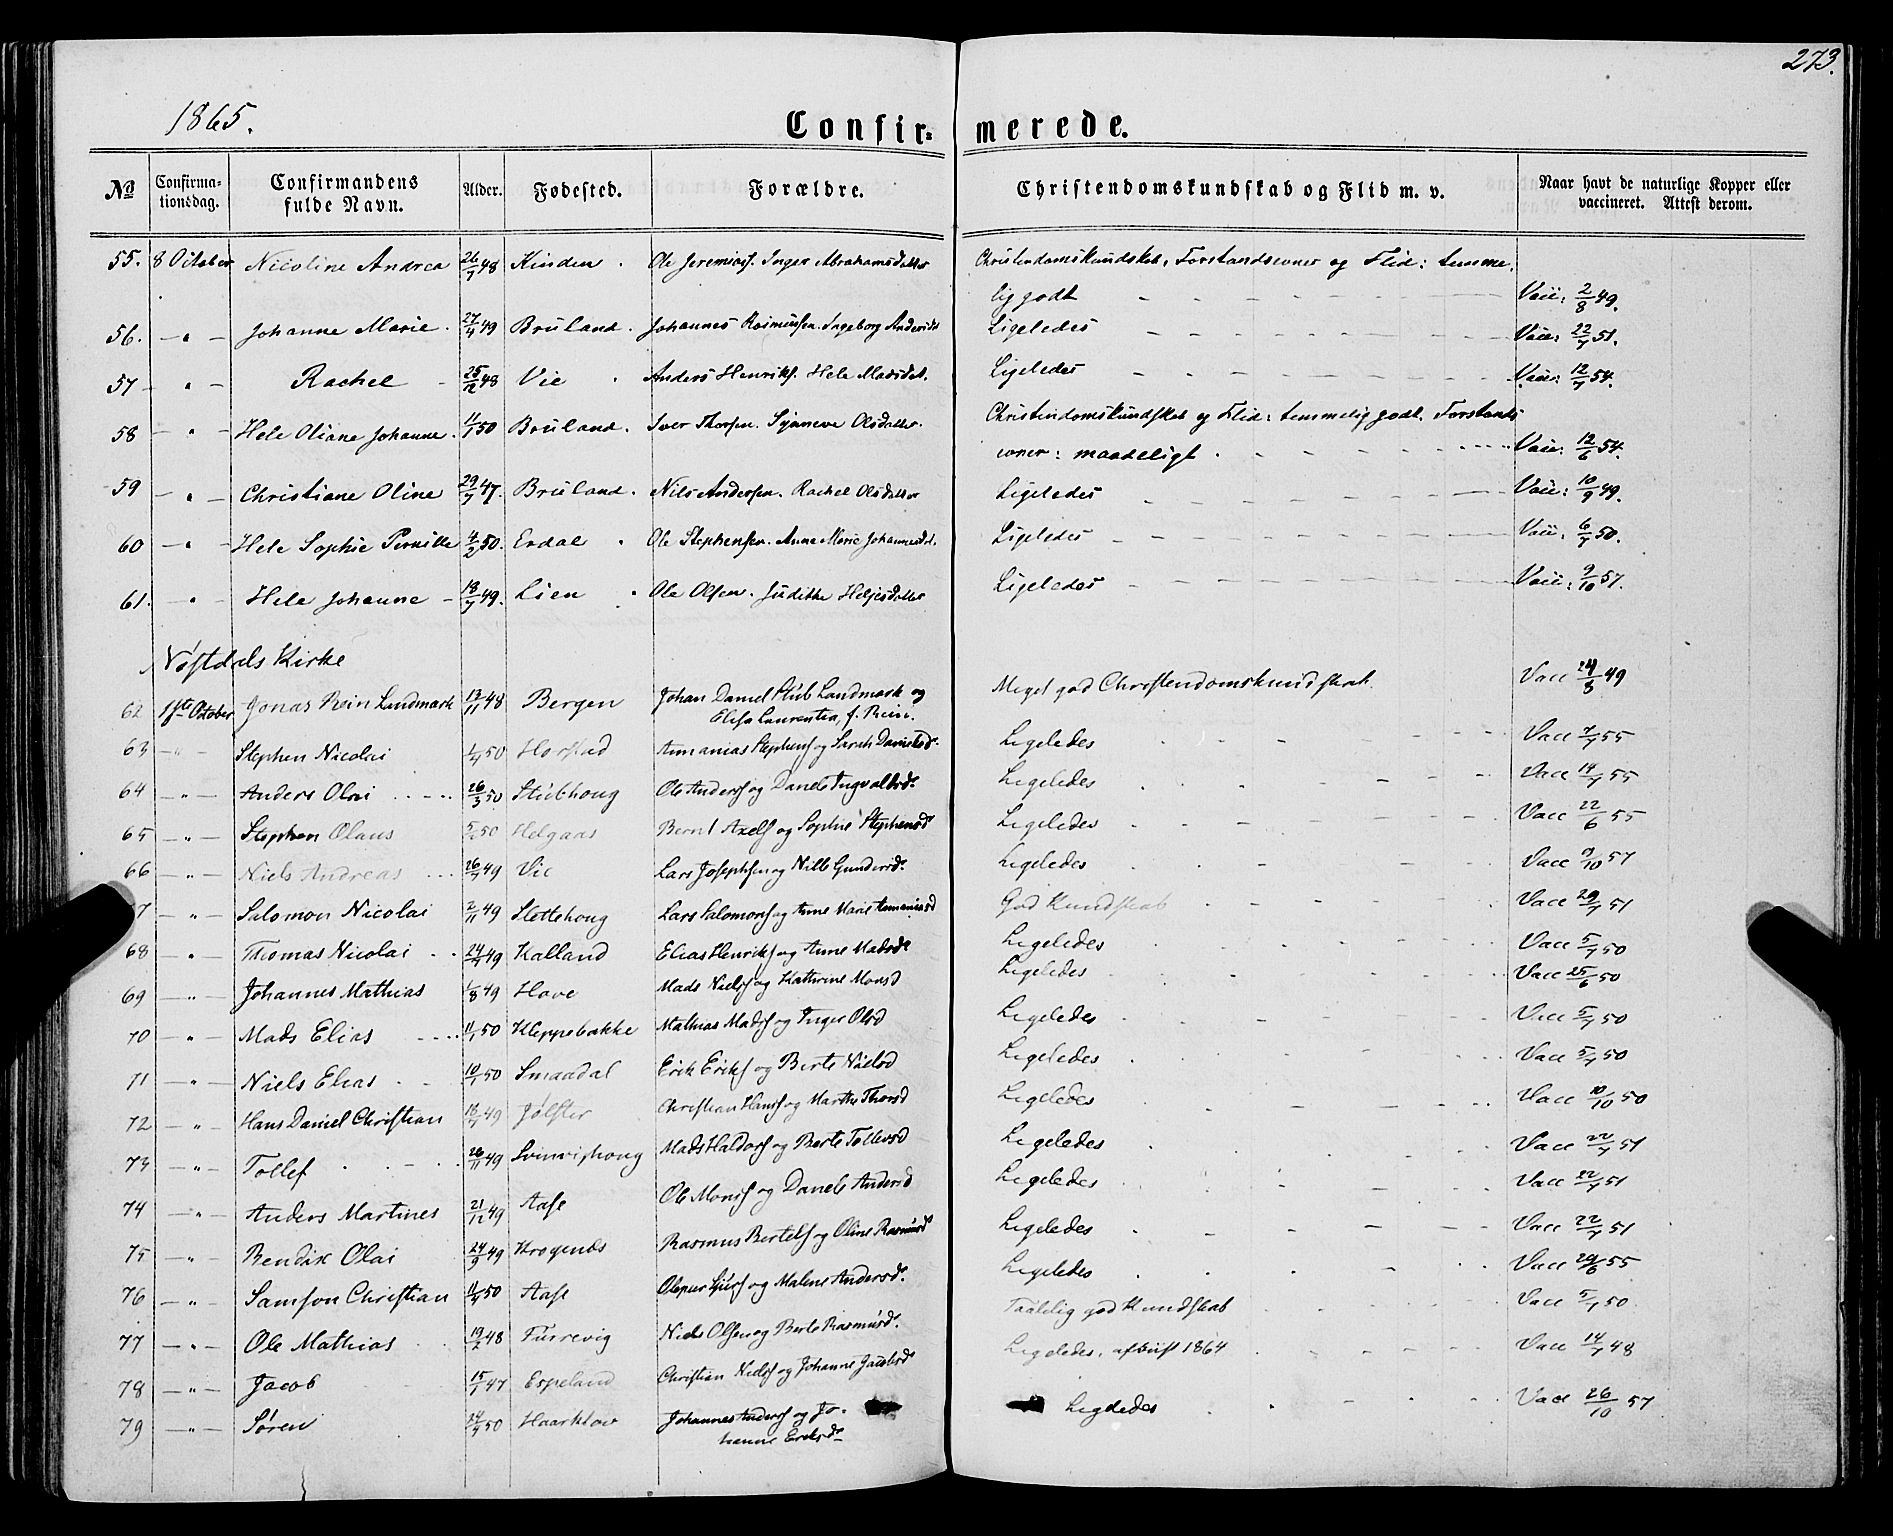 273.
1865.
Confir- merede.
No Confirmationsdag. Confirmandens fulde Navn. Alder. Fødested. Forældre. Christendomskundskab og Flid m. v. Naar havt de naturlige Kopper eller vaccineret. Attest derom.
55. 8 October Nicoline Andrea 26/7 48 Kinden. Ole Jeremiasf. Inger Abrahamsdatter Christendomskundskab, Forstandsevner og Flid: temme-
lig godt - - - Vacc: 2/8 49.
56. - " - Johanne Marie. 27/4 49 Bruland. Johannes Rasmussen. Ingeborg Andersdt Ligeledes - - - Vacc: 22/7 51.
57 - " - Rachel - 25/12 48 Vie. Anders Henriksf. Hele Madsdat. Ligeledes - - - Vacc: 12/7 54.
58 - " - Hele Oliane Johanne. 1/1 50 Bruland. Iver Thorsen. Synneve Olsdatter. Christendomskundskab og Flid: temmelig godt. Forstands
evner: maadeligt. - - - Vacc: 12/6 54.
59 - " - Christiane Oline 29/7 47. Bruland. Nils Andersen. Rachel Olsdatter Ligeledes - - - Vacc: 10/9 49.
60 - " - Hele Sophie Pernille 4/2 50. Erdal. Ole Stephensen. Anne Marie Johannesdt. Ligeledes - - - Vacc: 6/7 50.
61. " Hele Johanne - 18/7 49. Lien. Ole Olsen. Judithe Helgesdatter Ligeledes - - - Vacc: 9/10 57.
Nøstdals Kirke
62 1ste October Jonas Rein Landmark 13/11 48 Bergen Johan Daniel Stub Landmark og Meget god Christendomskundskab. Vacc 24/8 49
Elisa Laurentia, f. Rein.
63 - " - Stephen Nicolai 1/4 50 Horstad Annanias Stephensf og Sarah Danielsd. Ligeledes - - - Vacc 7/7 55
64 - " - Anders Olai 26/3 50 Stubhoug Ole Andersf og Danele Ingvaldsd. Ligeledes - - - Vacc 14/7 55
65 - " - Stephen Olaus 50 Helgaas Bernt Axelsf og Sophie Stephensd Ligeledes - - - Vacc 22/6 55
66 - " - Niels Andreas 26/7 49 Vie Lars Josephsen og Nille Gundersd. Ligeledes - - - Vacc 9/10 57
7 - " - Salomon Nicolai 2/11 49 Slettehoug Lars Salomonsf og Anne Marie Annaniasd God Kundskab - - - Vacc 29/7 51
68 - " - Thomas Nicolai 24/7 49 Kalland Elias Henriksf og Anne Madsd. Ligeledes - - - Vacc 5/7 50
69 - " - Johannes Mathias 1/8 49 Hove Mads Nielsf og Kathrine Monsd Ligeledes - - - Vacc 25/6 50
70 - " - Mads Elias 11/1 50 Kleppebakke Mathias Madsf og Inger Olsd Ligeledes - - - Vacc 5/7 50
71 - " - Niels Elias 10/1 50 Smaadal Erik Eriksf og Berte Nielsd Ligeledes - - - Vacc 5/7 50
72 - " - Hans Daniel Christian 49 Jølster Christian Hansf og Marthe Thorsd Ligeledes - - - Vacc 10/10 50
73 - " - Tollef 26/11 49 Svinvighoug Mads Haldorsf og Berte Tollevsd Ligeledes - - - Vacc 22/7 51
74 - " - Anders Martines 21/12 49 Aase Ole Monsf og Danele Andersd Ligeledes - - - Vacc 22/7 51
75 - " - Bendix Olai 24/9 49 Krogenæs Rasmus Bertelsf og Oline Rasmusd Ligeledes - - - Vacc 22/7 51
76 - " - Samson Christian 11/4 50 Aase og Malene Andersd. Ligeledes - - - Vacc 29/6 55
77 - " - Ole Mathias 19/2 48 Furrevig Niels Olsen og Berte Rasmusd. Taalelig god Kundskab - - - Vacc 5/7 50
78 - " - Jacob 15/1 47 Espeland Christian Nielsf og Johanne Jacobsd. Ligeledes, afviist 1864 - - - Vacc 14/7 48
79 - " - Søren 24/4 50 Haarklau Johannes Andersf og Jo- Ligeledes - - - Vacc 26/10 57
hanne Eriksd.